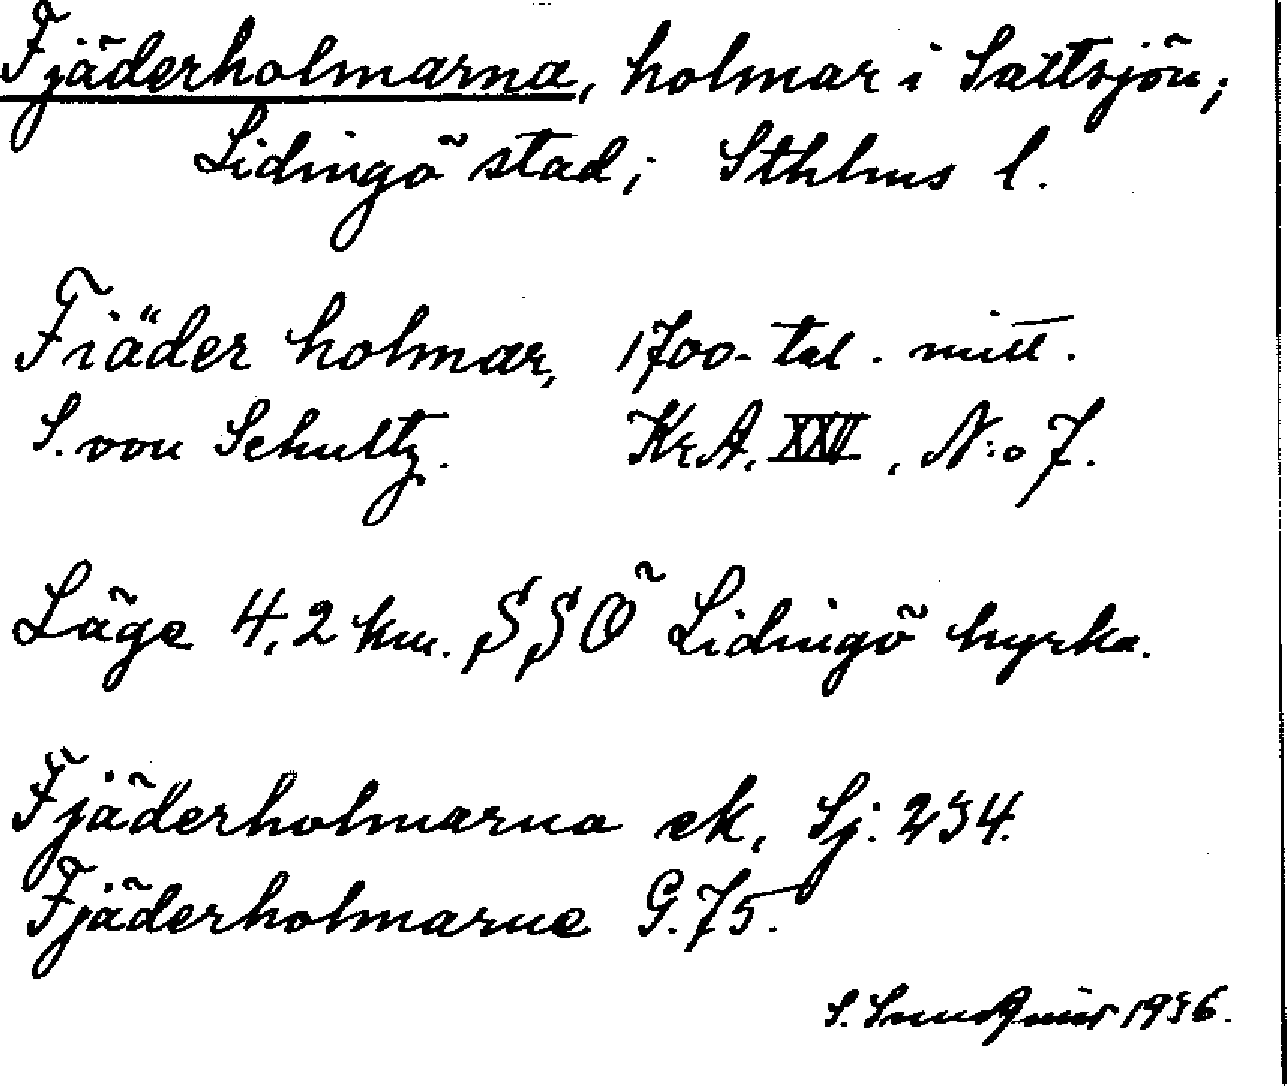 Fjäderholmarna, holmar i Saltsjön;
Lidingö stad; Sthlms l.
Fiäder holmar, 1700-tal. mitt.
S. von Schultz. KrA. XXVI, N:o 7.
Läge 4,2 km. SSÖ Lidingö kyrka.
Fjäderholmarna ek, Sj. 234.
Fjäderholmarne G. 75.
S. 1936.